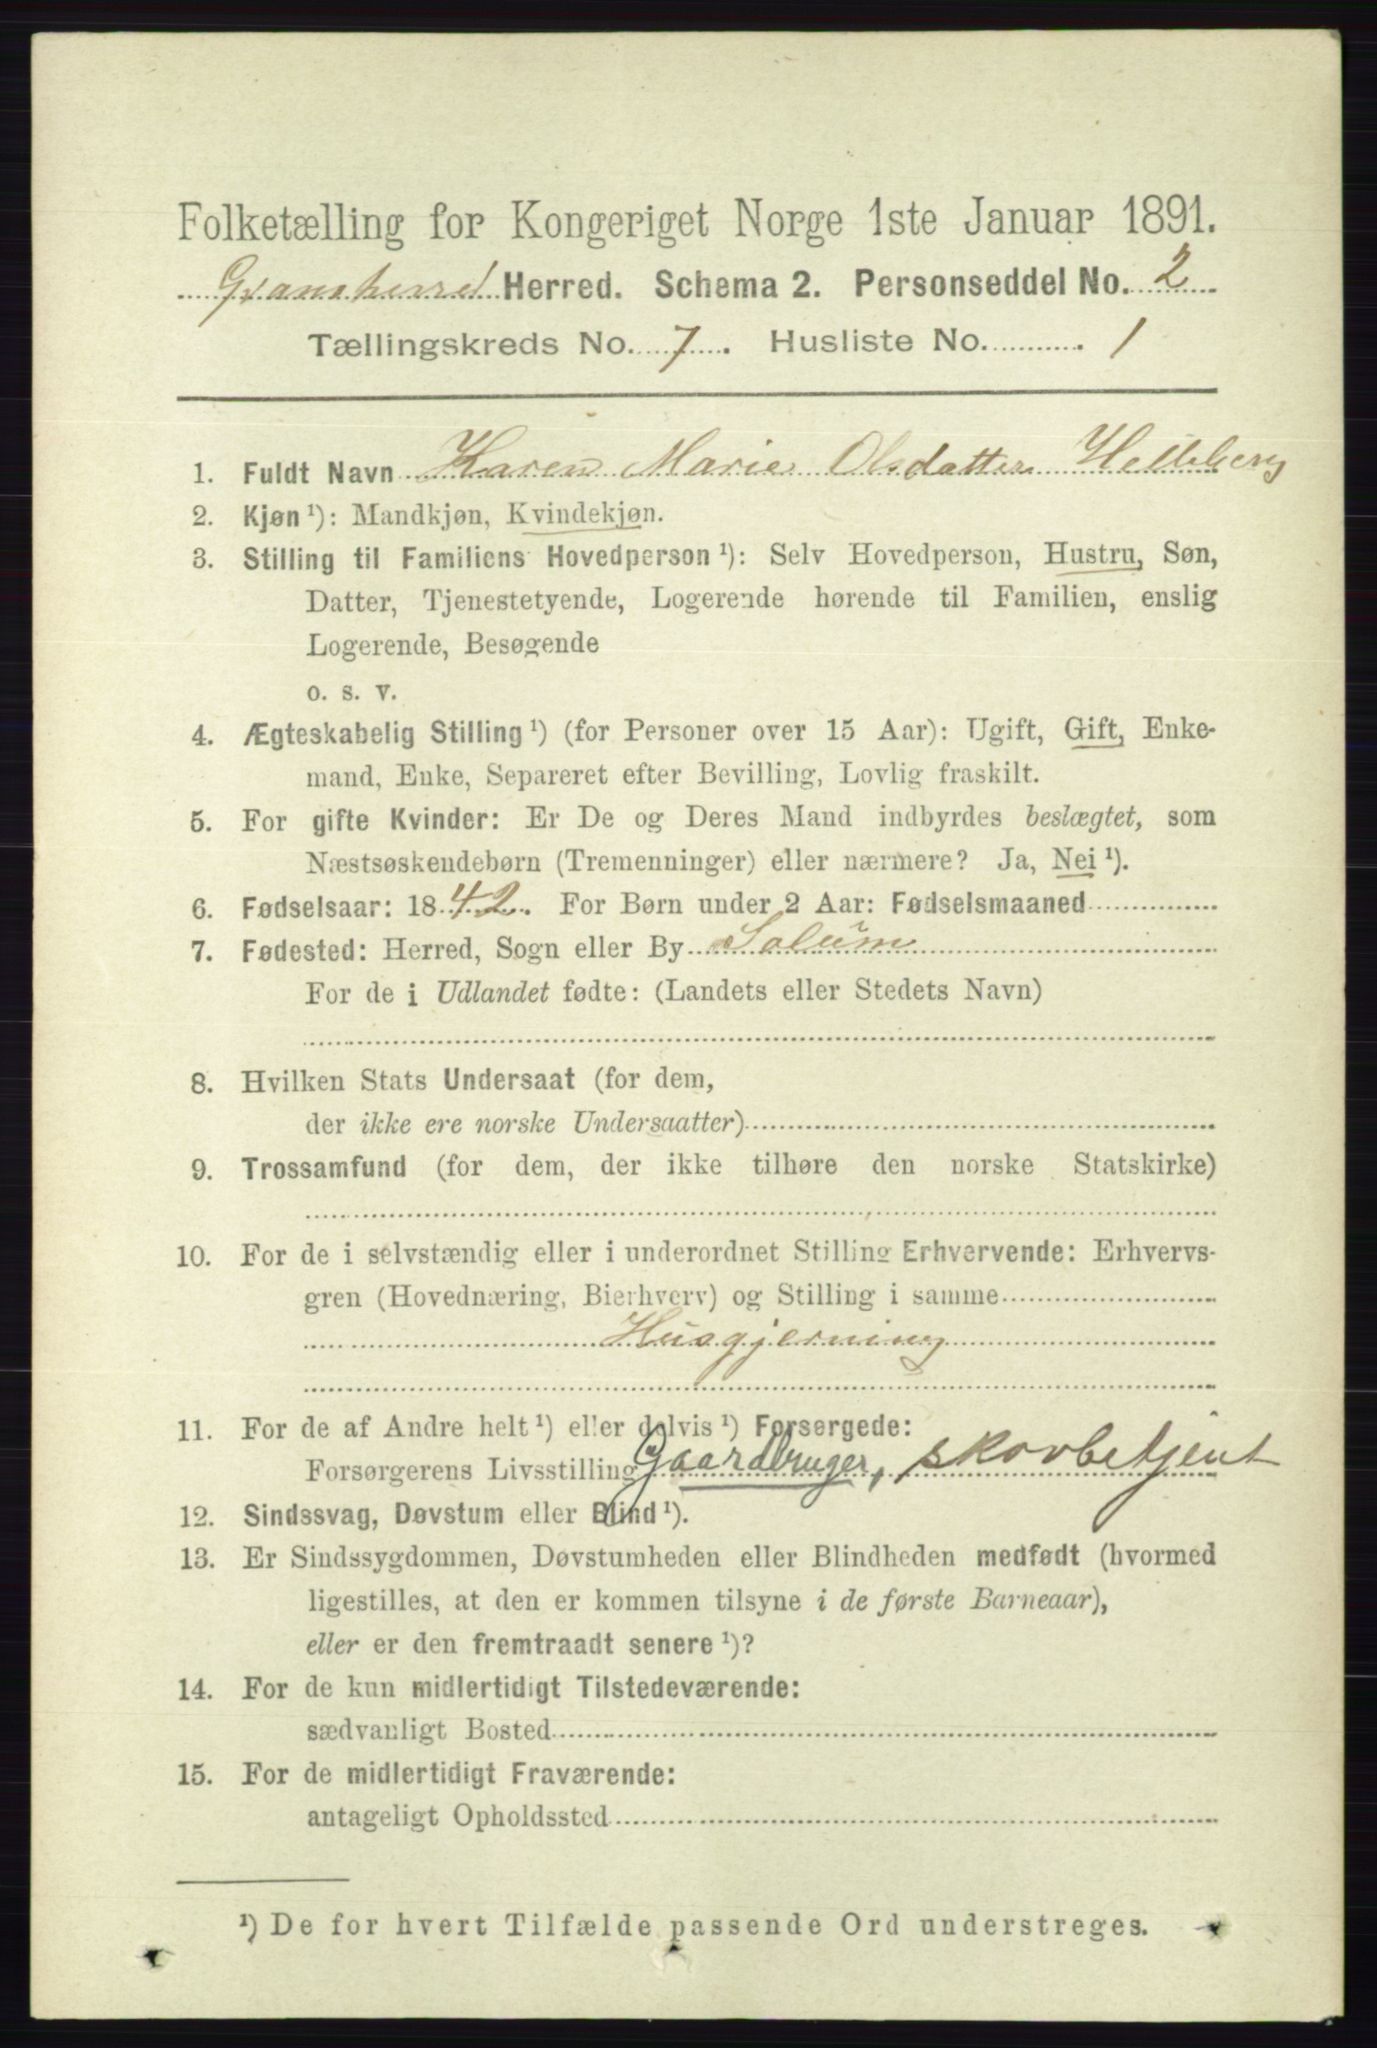 Folketælling for Kongeriget Norge 1ste Januar 1891.
Gransherred Herred. Schema 2. Personseddel No. 2
Tællingskreds No. 7. Husliste No. 1
1. Fuldt Navn Karen Marie Olsdatter
2. Kjøn¹): Mandkjøn, Kvindekjøn.
3. Stilling til Familiens Hovedperson¹): Selv Hovedperson, Hustru, Søn,
Datter, Tjenestetyende, Logerende hørende til Familien, enslig
Logerende, Besøgende
o. s. v.
4. Ægteskabelig Stilling¹) (for Personer over 15 Aar): Ugift, Gift, Enke-
mand, Enke, Separeret efter Bevilling, Lovlig fraskilt.
5. For gifte Kvinder: Er De og Deres Mand indbyrdes beslægtet, som
Næstsøskendebørn (Tremenninger) eller nærmere? Ja, Nei¹).
6. Fødselsaar: 1842. For Børn under 2 Aar: Fødselsmaaned
7. Fødested: Herred, Sogn eller By Solum
For de i Udlandet fødte: (Landets eller Stedets Navn)
8. Hvilken Stats Undersaat (for dem,
der ikke ere norske Undersaatter)
9. Trossamfund (for dem, der ikke tilhøre den norske Statskirke)
10. For de i selvstændig eller i underordnet Stilling Erhvervende: Erhvervs-
gren (Hovednæring, Bierhverv) og Stilling i samme
Husgjerning
11. For de af Andre helt¹) eller delvis¹) Forsørgede:
Forsørgerens Livsstilling Gaardbruger, skovbetjent
12. Sindssvag, Døvstum eller Blind¹).
13. Er Sindssygdommen, Døvstumheden eller Blindheden medfødt (hvormed
ligestilles, at den er kommen tilsyne i de første Barneaar),
eller er den fremtraadt senere¹)?
14. For de kun midlertidigt Tilstedeværende:
sædvanligt Bosted
15. For de midlertidigt Fraværende:
antageligt Opholdssted
¹) De for hvert Tilfælde passende Ord understreges.